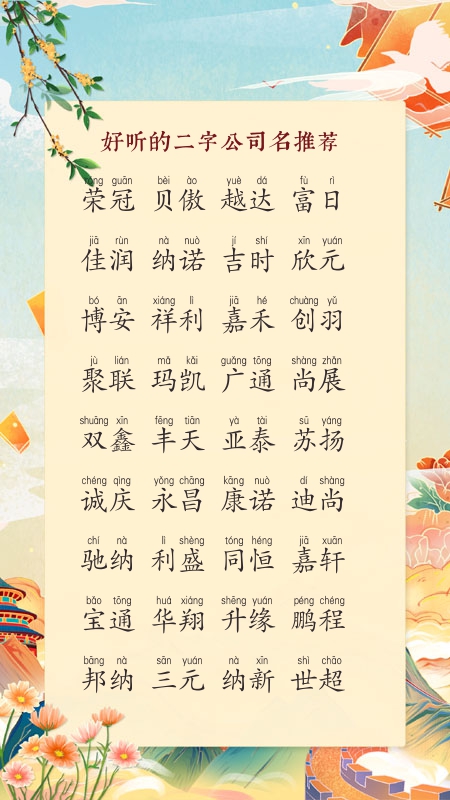 好听的二字公司名推荐
róng guān bèi ào yuè dá fù rì
荣冠 贝傲 越达 富日
jiā rùn nà nuò jí shí xīn yuán
佳润 纳诺 吉时 欣元
bó ān xiáng lì jiā hé chuàng yǔ
博安 祥利 嘉禾 创羽
jù lián mǎ kǎi guǎng tōng shàng zhǎn
聚联 玛凯 广通 尚展
shuāng xīn fēng tiān yà tài sū yáng
双鑫 丰天 亚泰 苏扬
chéng qìng yǒng chāng kāng nuò dí shàng
诚庆 永昌 康诺 迪尚
chí nà lì shèng tóng héng jiā xuān
驰纳 利盛 同恒 嘉轩
bǎo tōng huá xiáng shēng yuán péng chéng
宝通 华翔 升缘 鹏程
bāng nà sān yuán nà xīn shì chāo
邦纳 三元 纳新 世超